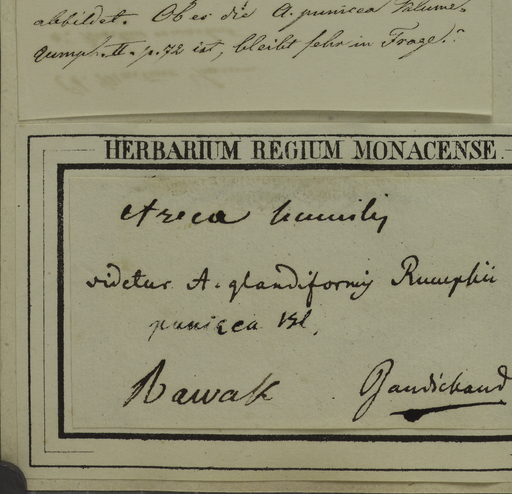 abbildet. Ob es die A. punicea Blume.
Rumph. II. p. 72 ist, bleibt sehr in Frage."
HERBARIUM REGIUM MONACENSE.
Areca humilis
videtur A. glandiformis Rumphii
punicea Bl.
Rawak Gaudichaud